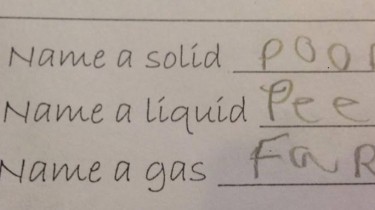 Name a solid POOP
Name a liquid Pee
Name a gas FaR